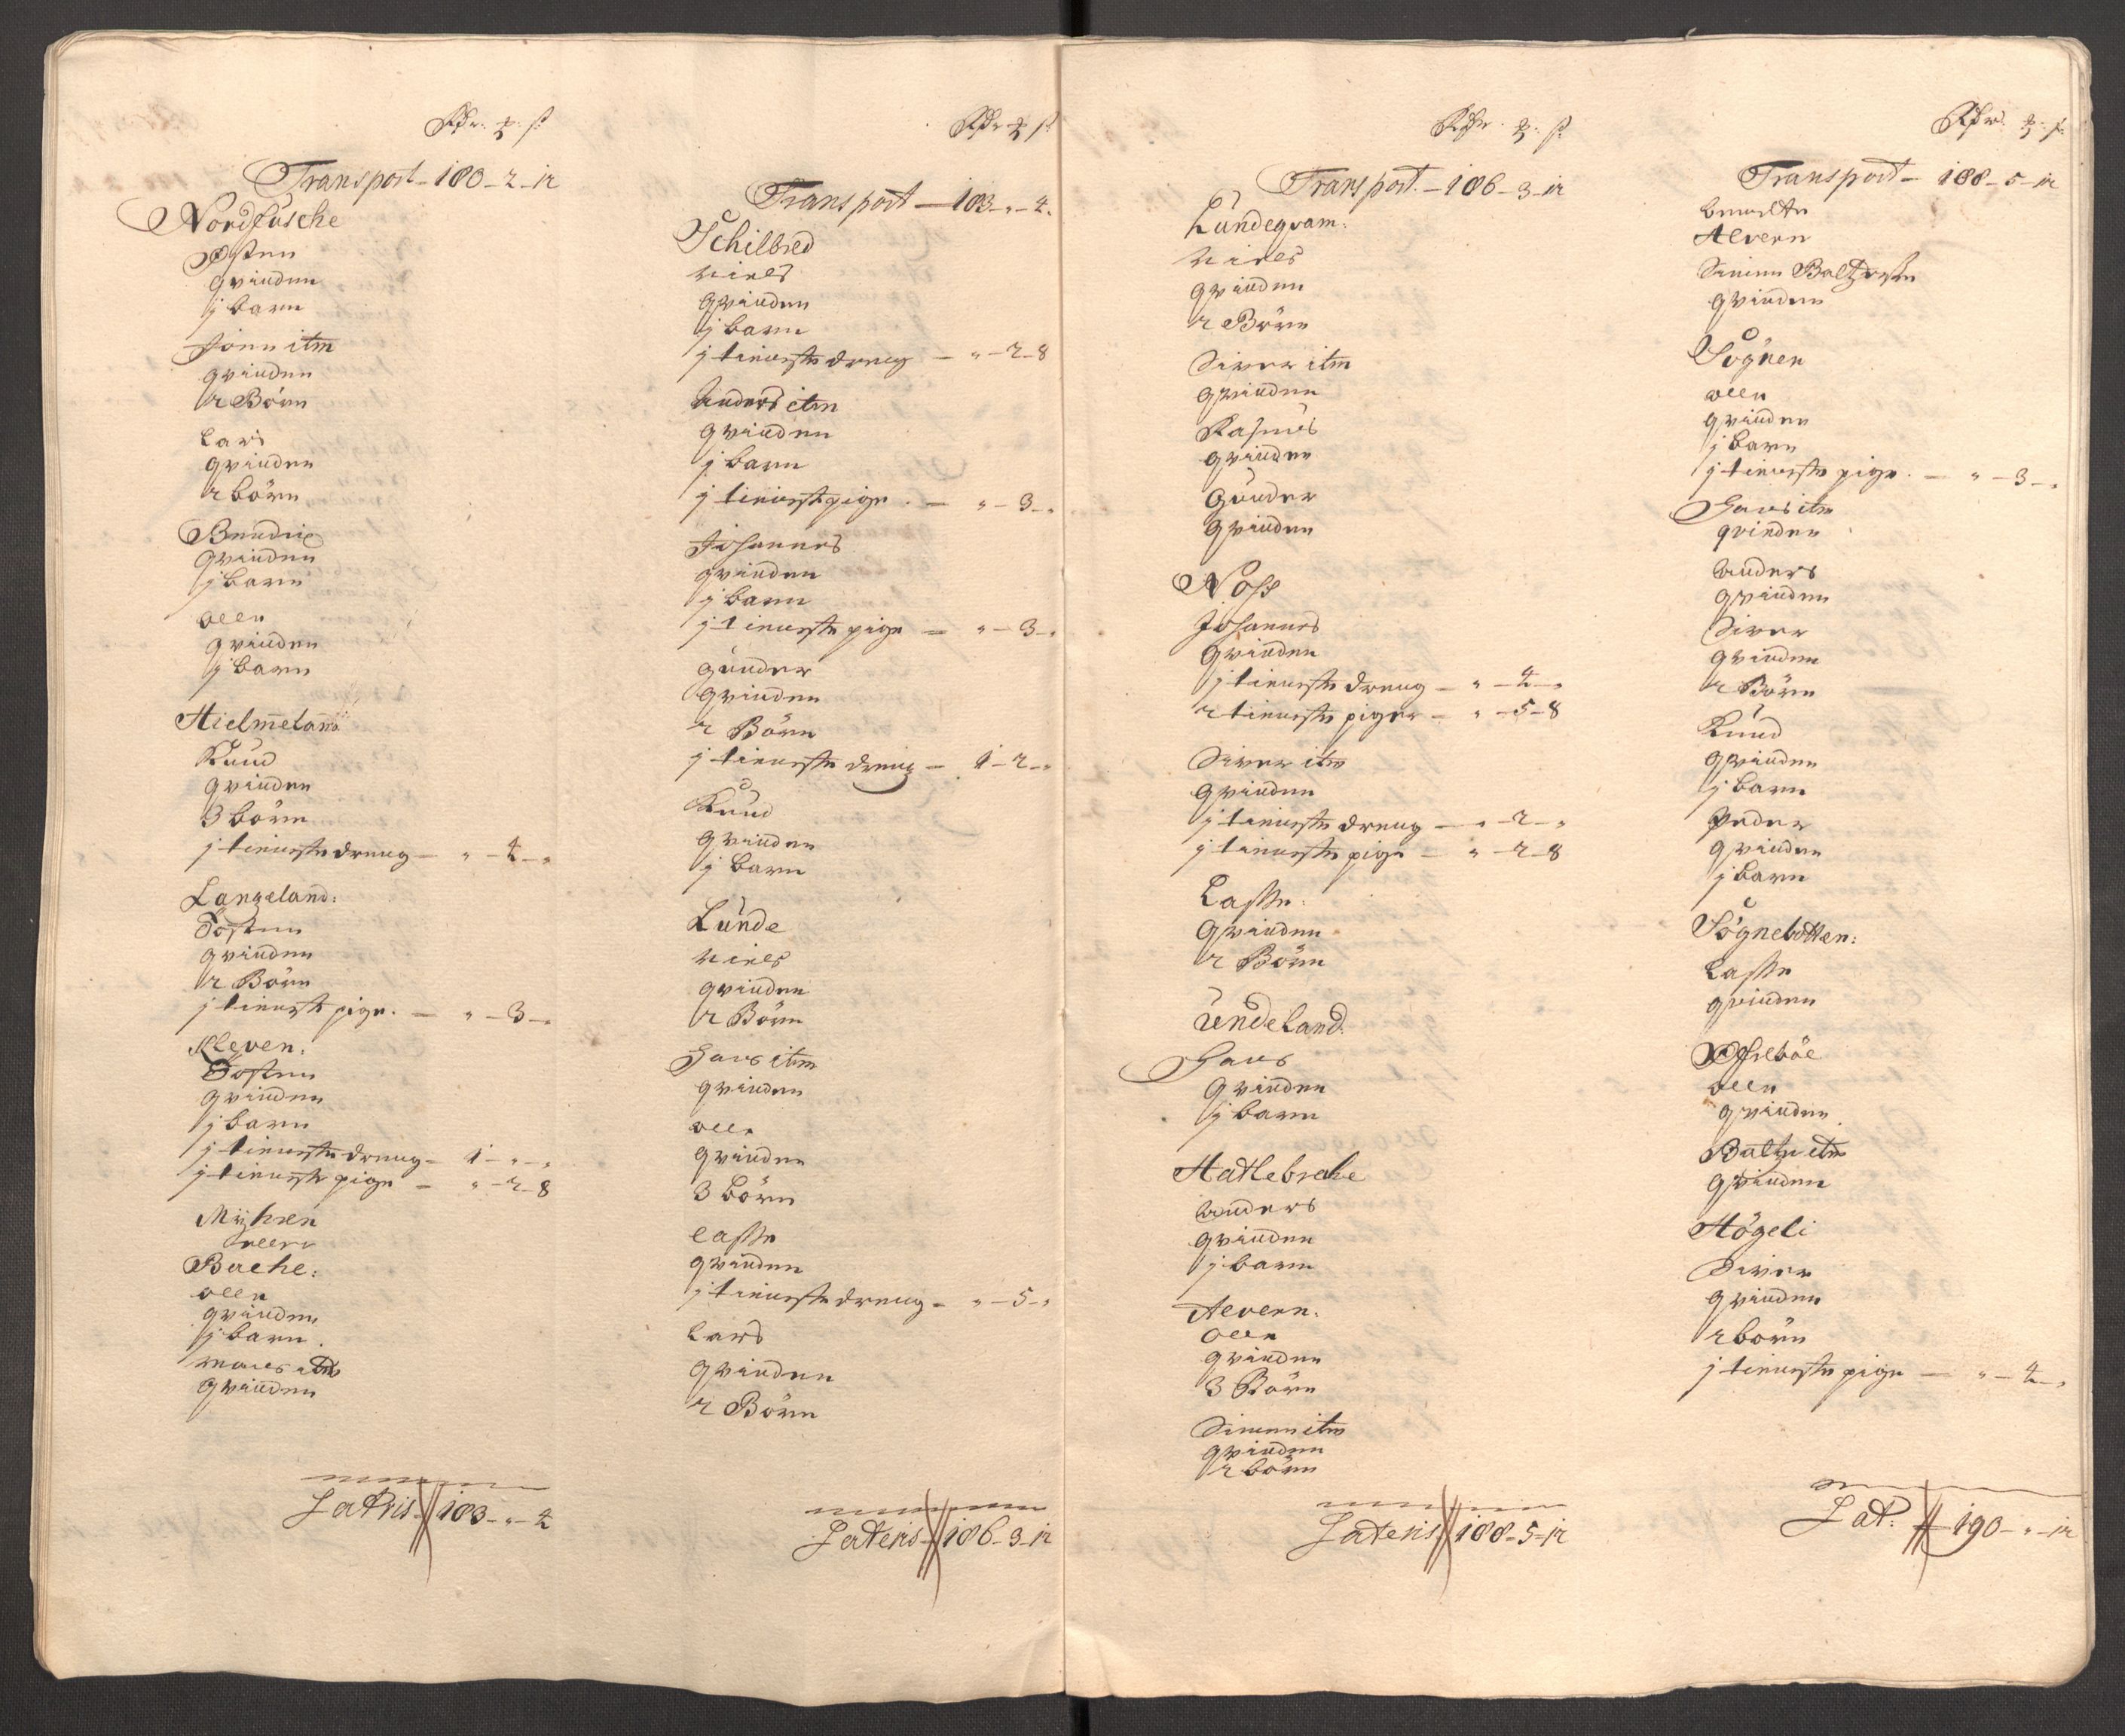 Rdr. ₻. ß.
Transport – 180 – 2 – 12
Nordfusche
Østen
qvinden
j barn
Jonn itm
qvinden
2 Börn
Lars
qvinden
2 börn
Bendix
qvinden
j barn
olle
qvinden
j barn
Hielmeland
Knud
qvinden
3 börn
j tieniste dreng – " – 4 – "
Langeland:
Tosten
qvinden
2 Börn
j tieniste pige. – " – 3 – "
Kleven:
Tosten
qvinden
j barn
j tieniste dreng – 1 – " – "
j tieniste pige – " – 2 – 8
Mÿhren
Bache:
olle
qvinden
j barn
qvinden
Latris 183 – " – 4
Rdr ₻ ß
Transport – 183 – " – 4.
Schilbred
Niels
qvinden
j barn
j tieniste dreng – " – 2 – 8
Anders itm
qvinden
j barn
j tieniste pige. – " – 3 – "
Johannes
qvinden
j barn
j tieniste pige – " – 3 – "
gunder
qvinden
2 Börn
j tieniste dreng – 1 – 2 – "
Knud
qvinden
j barn
Lunde
Niels
qvinden
2 Börn
Hans itm
qvinden
olle
qvinden
3 börn
Lasse
qvinden
j tieniste dreng – " – 5 – "
Lars
qvinden
2 Börn
Lateris 186 – 3 – 12
Rdr. ₻. ß.
Transport. – 186 – 3 – 12
Lundeqvam:
Niels
qvinden
2 Börn
Siver itm
qvinden
Rasmus
qvinden
gunder
qvinden
Noss
Johannes
qvinden
j tieniste dreng – " – 4 – "
2 tieniste piger – " – 5 – 8
Siver itm
qvinden
j tieniste dreng – " – 2 – "
j tieniste pige – " – 2 – 8
Lasse:
qvinden
2 Börn
Undeland:
Hans
qvinden
j barn
Hatlebrecke
anders
qvinden
j barn
Alvern:
olle
qvinden
3 Börn
Simen itm
qvinden
2 börn
Lateris 188 – 5 – 12
Rdr. ₻. ß.
Transport – 188 – 5 – 12
bemelte
Alvern
Simen Baltzersen
qvinden
Sögnen
olle
qvinden
j barn
j tieniste pige. – " – 3 – "
Hans itm
qvinden
anders
qvinden
Siver
qvinden
2 Börn
Knud
qvinden
j barn
peder
qvinden
j barn
Sögnebotten:
Lasse
qvinden
Øfreböe
olle
qvinden
Baltzer itm
qvinden
Högeli
Siver
qvinden
2 börn
j tieniste pige – " – 4 – "
Lat: 190 – " – 12